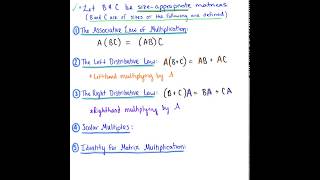 Let B & C be size-appropriate matrices
(B and C are of sizes so the following are defined)
① The Associative Law of Multiplication:
A(BC) = (AB)C
② The Left Distributive Law: A(B+C) = AB + AC
*Lefthand multiplying by A
③ The Right Distributive Law: (B+C)A = BA + CA
*Righthand multiplying by A
④ Scalar Multiples:
⑤ Identity for Matrix Multiplication: